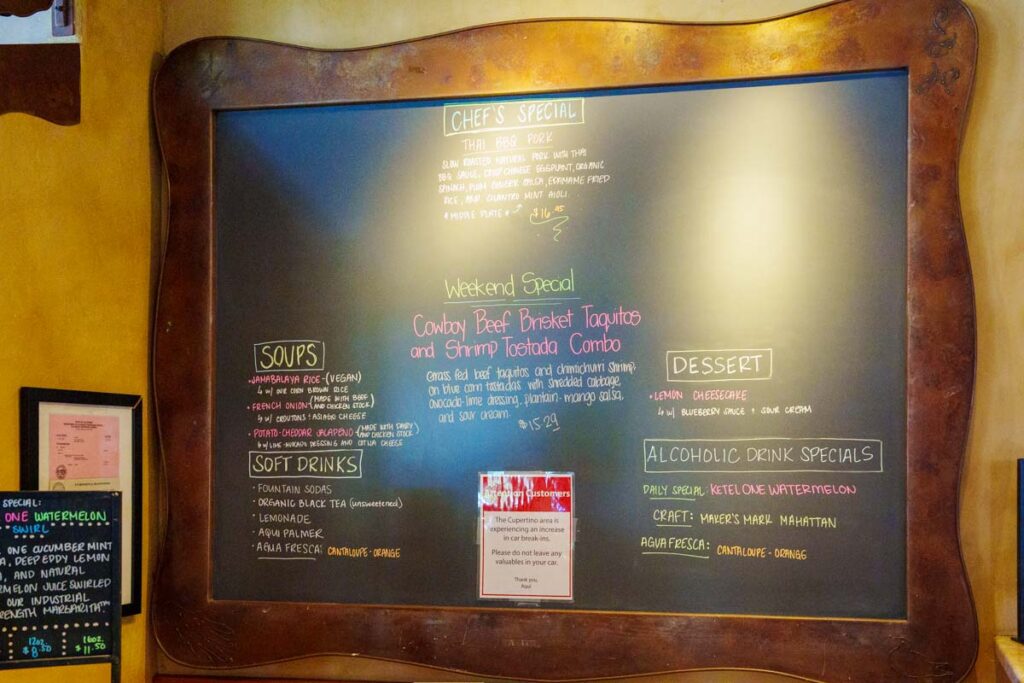 CHEF'S SPECIAL
THAI BBQ PORK
SLOW ROASTED NATURAL PORK WITH THAI
BBQ SAUCE, CRISP CHINESE EGGPLANT, ORGANIC
SPINACH, PLUM GINGER SALSA, EDAMAME FRIED
RICE, AND CILANTRO MINT AIOLI.
* MIDDLE PLATE *
$16.95
Weekend Special
Cowboy Beef Brisket Taquitos
and Shrimp Tostada Combo
Grass fed beef taquitos and chimichurri shrimp
on blue corn tostadas with shredded cabbage,
avocado-lime dressing, plantain-mango salsa,
and sour cream.
$15.29
SOUPS
• JAMABALAYA RICE - (VEGAN)
& W/ OUR CORN BROWN RICE
• FRENCH ONION (MADE WITH BEEF AND CHICKEN STOCK)
& W/ CROUTONS + ASIAGO CHEESE
• POTATO-CHEDDAR JALAPENO (MADE WITH DAIRY AND CHICKEN STOCK)
& W/ DRESSING AND COTIJA CHEESE
SOFT DRINKS
• FOUNTAIN SODAS
• ORGANIC BLACK TEA (unsweetened)
• LEMONADE
• AQUI PALMER
• AGUA FRESCA: CANTALOUPE - ORANGE
DESSERT
• LEMON CHEESECAKE
& W/ BLUEBERRY SAUCE + SOUR CREAM
ALCOHOLIC DRINK SPECIALS
DAILY SPECIAL: KETEL ONE WATERMELON
CRAFT: MAKER'S MARK MAHATTAN
AGUA FRESCA: CANTALOUPE - ORANGE
Attention Customers
The Cupertino area is
experiencing an increase
in car break-ins.
Please do not leave any
valuables in your car.
Thank you,
Aqui
SPECIAL:
ONE WATERMELON
SWIRL
ONE CUCUMBER MINT
, DEEP EDDY LEMON
, AND NATURAL
MELON JUICE SWIRLED
OUR INDUSTRIAL
RENGTH MARGARITA™
12oz. 16oz.
$8.50 $11.50